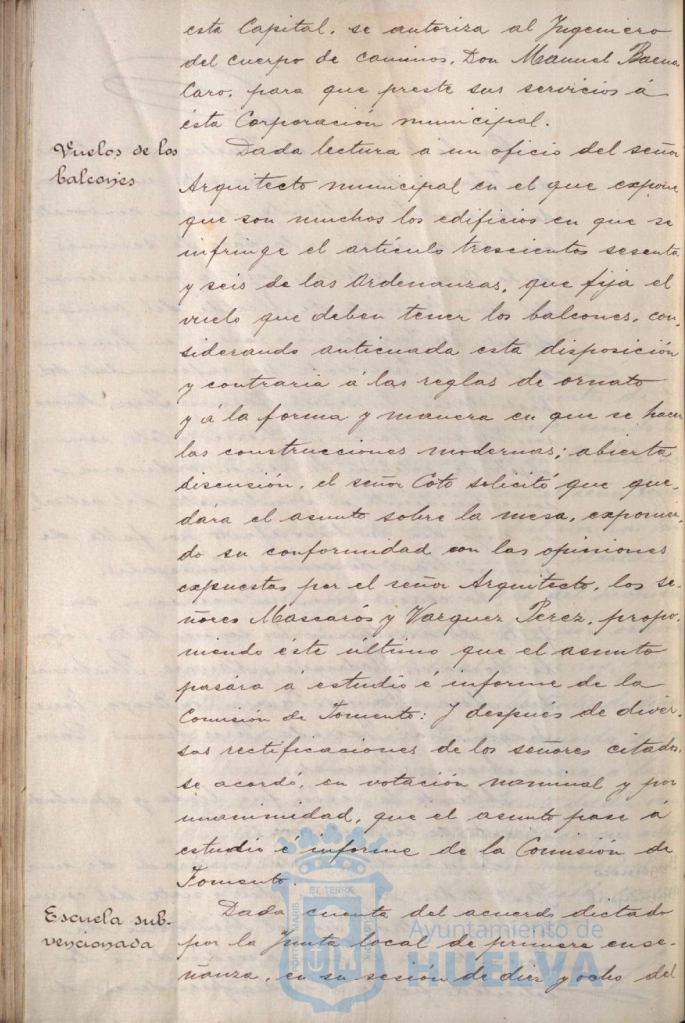 esta Capital, se autoriza al Ingeniero
del cuerpo de caminos, Don Manuel Baena
Caro, para que preste sus servicios á
ésta Corporación municipal.
Vuelos de los
balcones
Dada lectura á un oficio del señor
Arquitecto municipal en el que expone
que son muchos los edificios en que se
infringe el artículo trescientos sesenta
y seis de las Ordenanzas, que fija el
vuelo que deben tener los balcones, con-
siderando anticuada esta disposición
y contraria á las reglas de ornato
y á la forma y manera en que se hacen
las construcciones modernas; abierta
discusión, el señor Coto solicitó que que-
dára el asunto sobre la mesa, exponien-
do su conformidad con las opiniones
expuestas por el señor Arquitecto, los se-
ñores Mascarós y Vazquez Perez, propo-
niendo éste último que el asunto
pasára á estudio é informe de la
Comisión de Fomento: Y después de diver-
sas rectificaciones de los señores citados,
se acordó, en votación nominal y por
unanimidad, que el asunto pase á
estudio é informe de la Comisión de
Fomento.
Escuela sub-
vencionada
Dada cuenta del acuerdo dictado
por la Junta local de primera ense-
ñanza, en su sesión de diez y ocho del
PORTUS MARIS ET TERRE
Ayuntamiento de
HUELVA